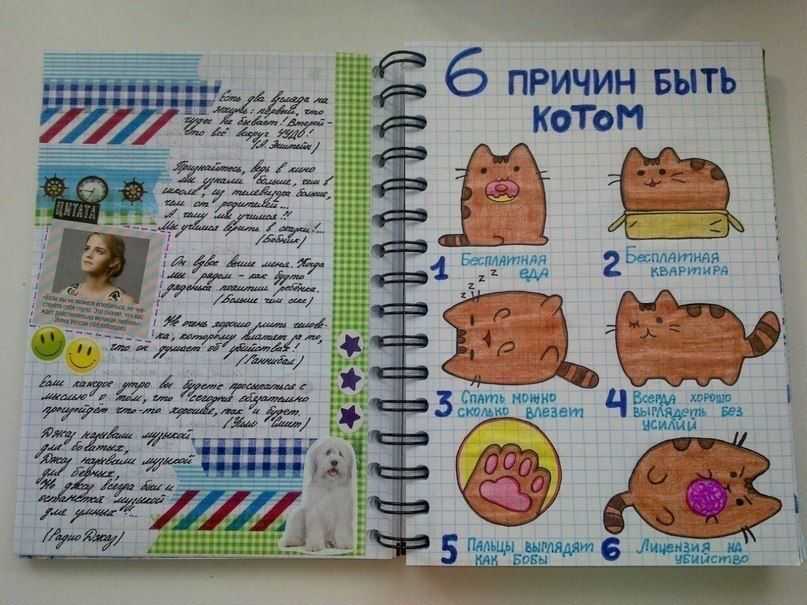 Есть два взгляда на
жизнь: первый, что
чудес не бывает! Второй -
что всё вокруг ЧУДО!
(А. Эйнштейн)
Признайтесь, ведь в кино
мы узнали больше, чем в
школе, из телевизора больше,
чем от родителей...
А чему мы учимся?!
Мы учимся верить в сказки!...
ЦИТАТА
Он вдвое выше меня. Когда
мы рядом - как будто
похитил ребёнка.
(Больше чем секс)
Не очень хорошо злить челове-
ка, которому платят за то,
что он думает об убийствах!
(Ганнибал)
Если каждое утро вы будете просыпаться с
мыслью о том, что сегодня обязательно
произойдёт что-то хорошее, так и будет.
(Уилл Смит)
Джаз называли музыкой
для богатых,
Джаз называли музыкой
для бедных.
Но джаз всегда был и
останется музыкой
для умных!...
(Радио Джаз)
6 ПРИЧИН БЫТЬ
КОТОМ
1 Бесплатная
еда
2 Бесплатная
квартира
z z z
3 Спать можно
сколько влезет
4 Всегда хорошо
выглядеть без
усилий
5 Пальцы выглядят
как бобы
6 Лицензия на
убийство